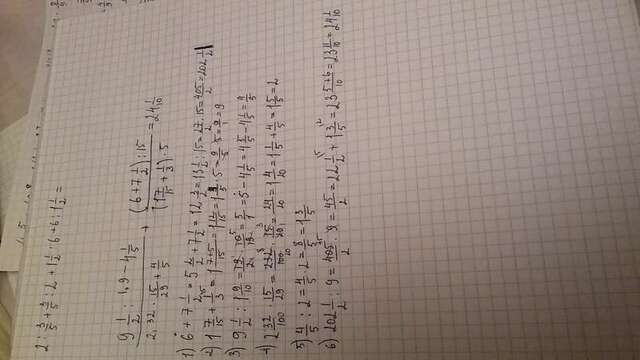 2 : 3/5 + 3/5 : 2 + 1 1/2 : 6 + 6 : 1 1/2 =
(9 1/2 : 1,9 - 4 1/5) / (2,32 : 15/29 + 4/5) + ((6 + 7 1/2) : 15) / ((1 7/15 + 1/3) · 5) = 24 1/10
1) 6 + 7 1/2 = 5 2/2 + 7 1/2 = 12 3/2 = 13 1/2 : 15 = 27/2 · 15 = 405/2 = 202 1/2
2) 1 7/15 + 1/3 = 1 7+5/15 = 1 12/15 = 1 4/5 · 5 = 9/5 · 5 = 9/1 = 9
3) 9 1/2 : 1 9/10 = 19/2 · 10/19 = 5/1 = 5 - 4 1/5 = 4 5/5 - 4 1/5 = 4/5
4) 2 32/100 : 15/29 = 232/100 · 15/29 = 24/20 = 1 4/20 = 1 1/5 + 4/5 = 1 5/5 = 2
5) 4/5 : 2 = 4/5 · 2 = 8/5 = 1 3/5
6) 202 1/2 : 9 = 405/2 · 9 = 45/2 = 22 1/2 + 1 3/5 = 23 5+6/10 = 23 11/10 = 24 1/10